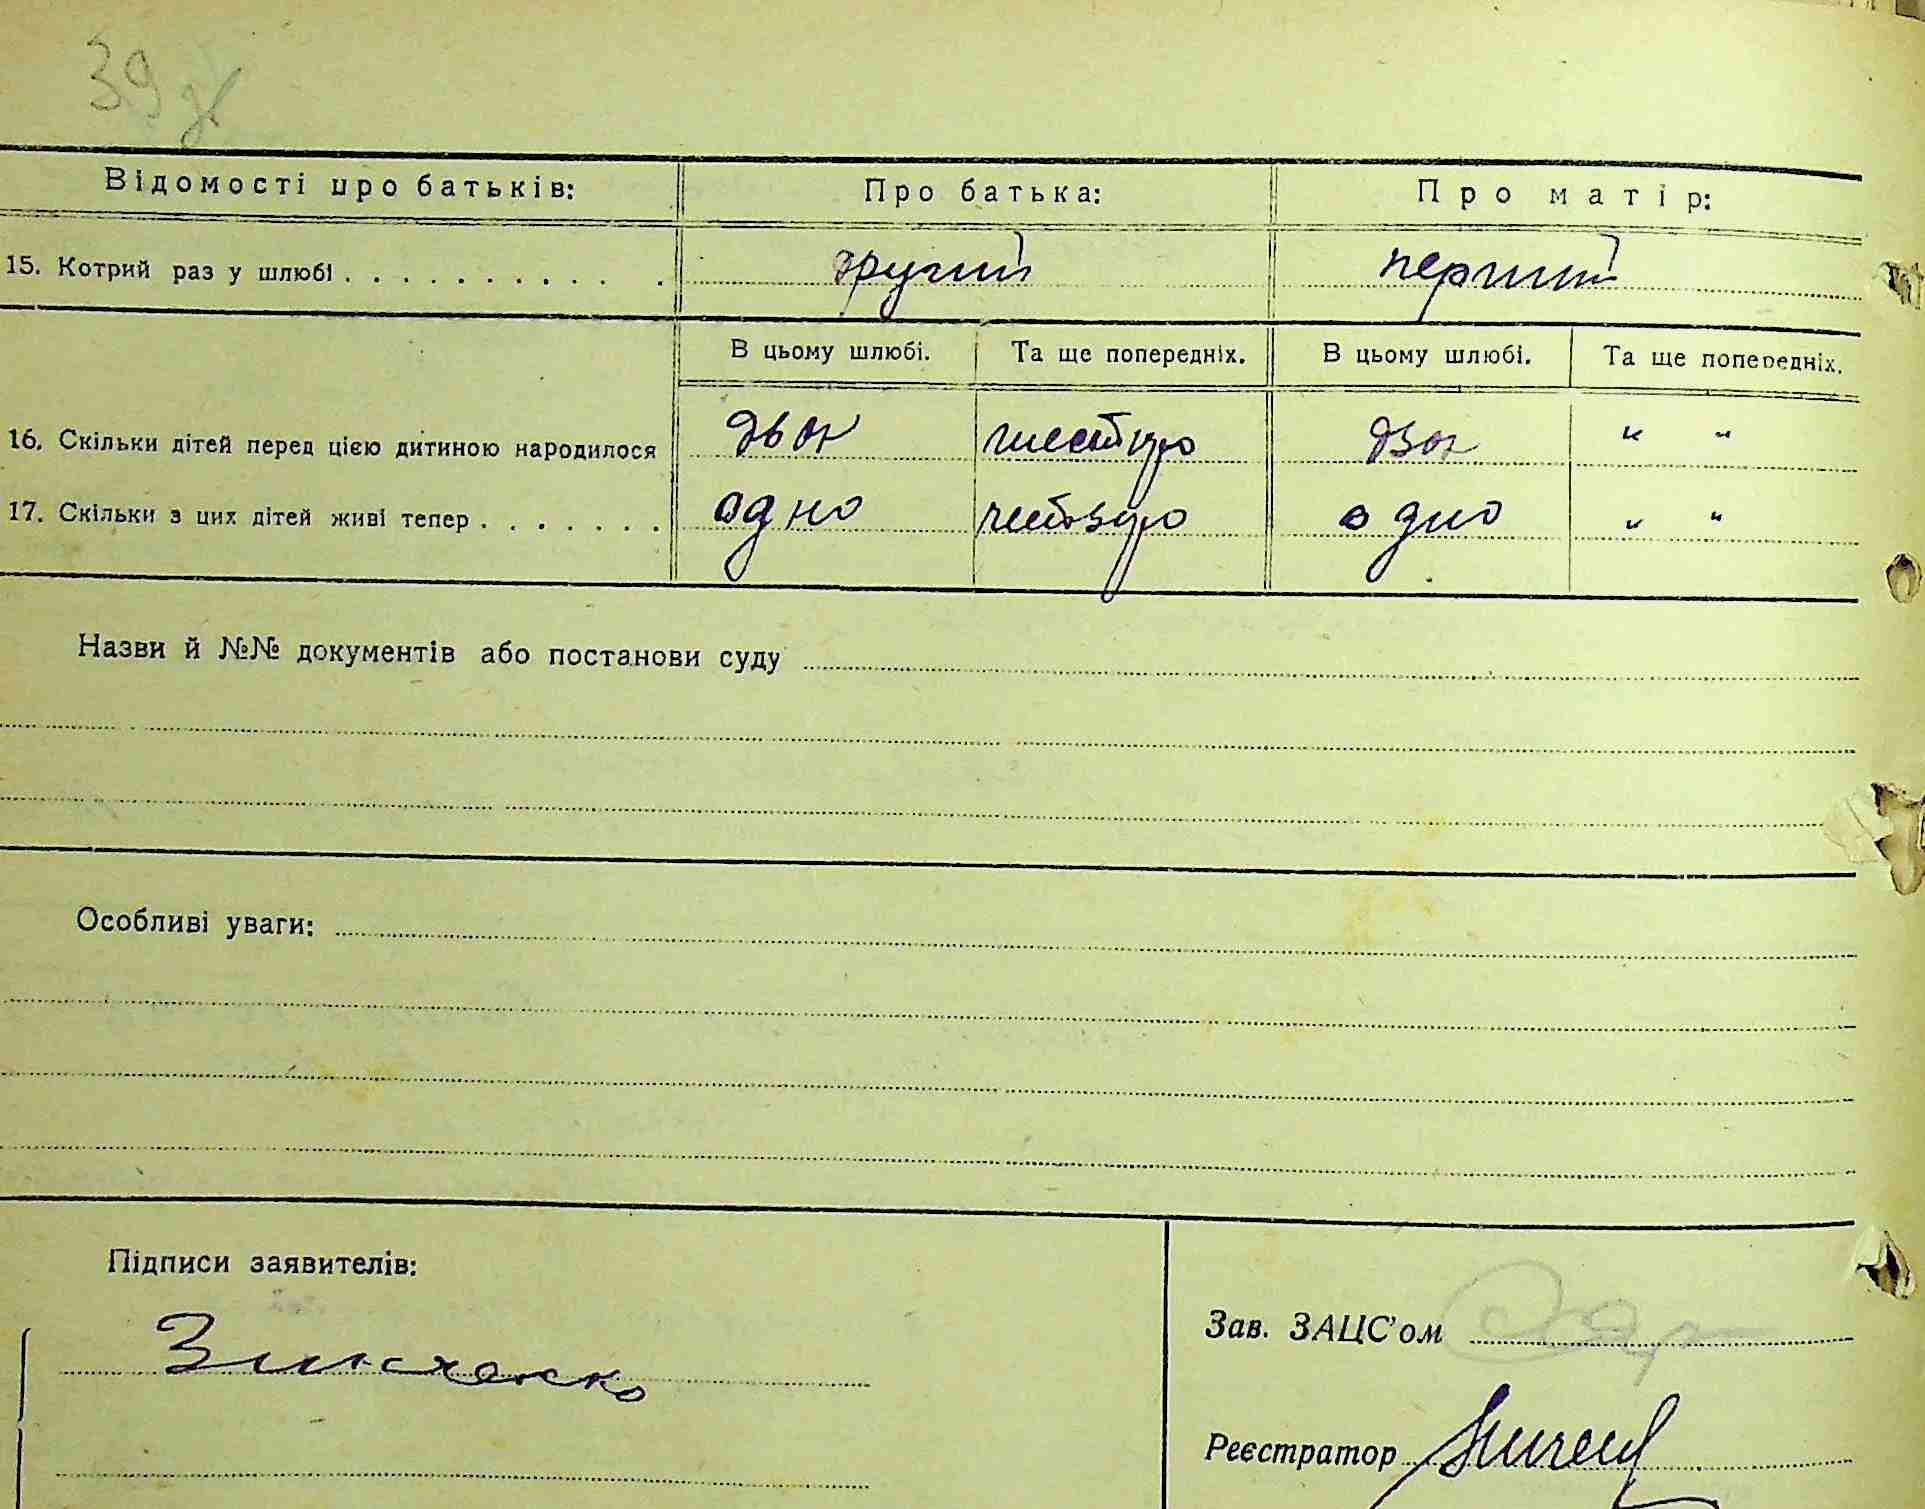 39
Відомості про батьків: Про батька: Про матір:
15. Котрий раз у шлюбі . . . . . . . . . . . другий перший
В цьому шлюбі. Та ще попередніх. В цьому шлюбі. Та ще попередніх.
16. Скільки дітей перед цією дитиною народилося двох шестеро двох " "
17. Скільки з цих дітей живі тепер . . . . . . . одно четверо одно " "
Назви й №№ документів або постанови суду
Особливі уваги:
Підписи заявителів:
Зав. ЗАЦС'ом
Зинченко
Реєстратор